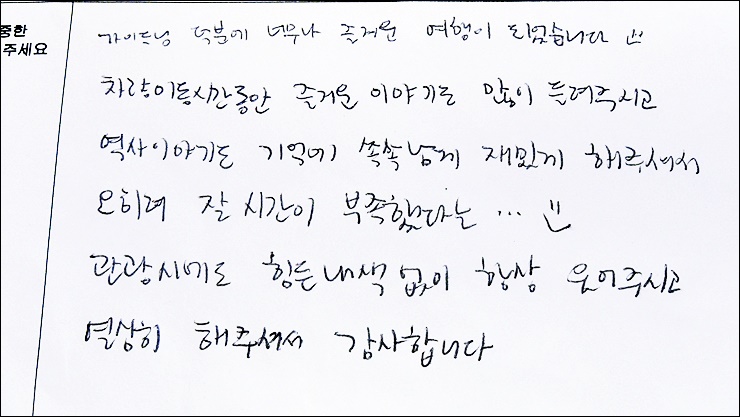 중한
주세요
가이드님 덕분에 너무나 즐거운 여행이 되었습니다 :)
차량이동시간동안 즐거운 이야기도 많이 들려주시고
역사이야기도 기억에 쏙쏙남게 재밌게 해주셔서
오히려 잘 시간이 부족했다는 ... :)
관광시에도 힘든내색 없이 항상 웃어주시고
열심히 해주셔서 감사합니다